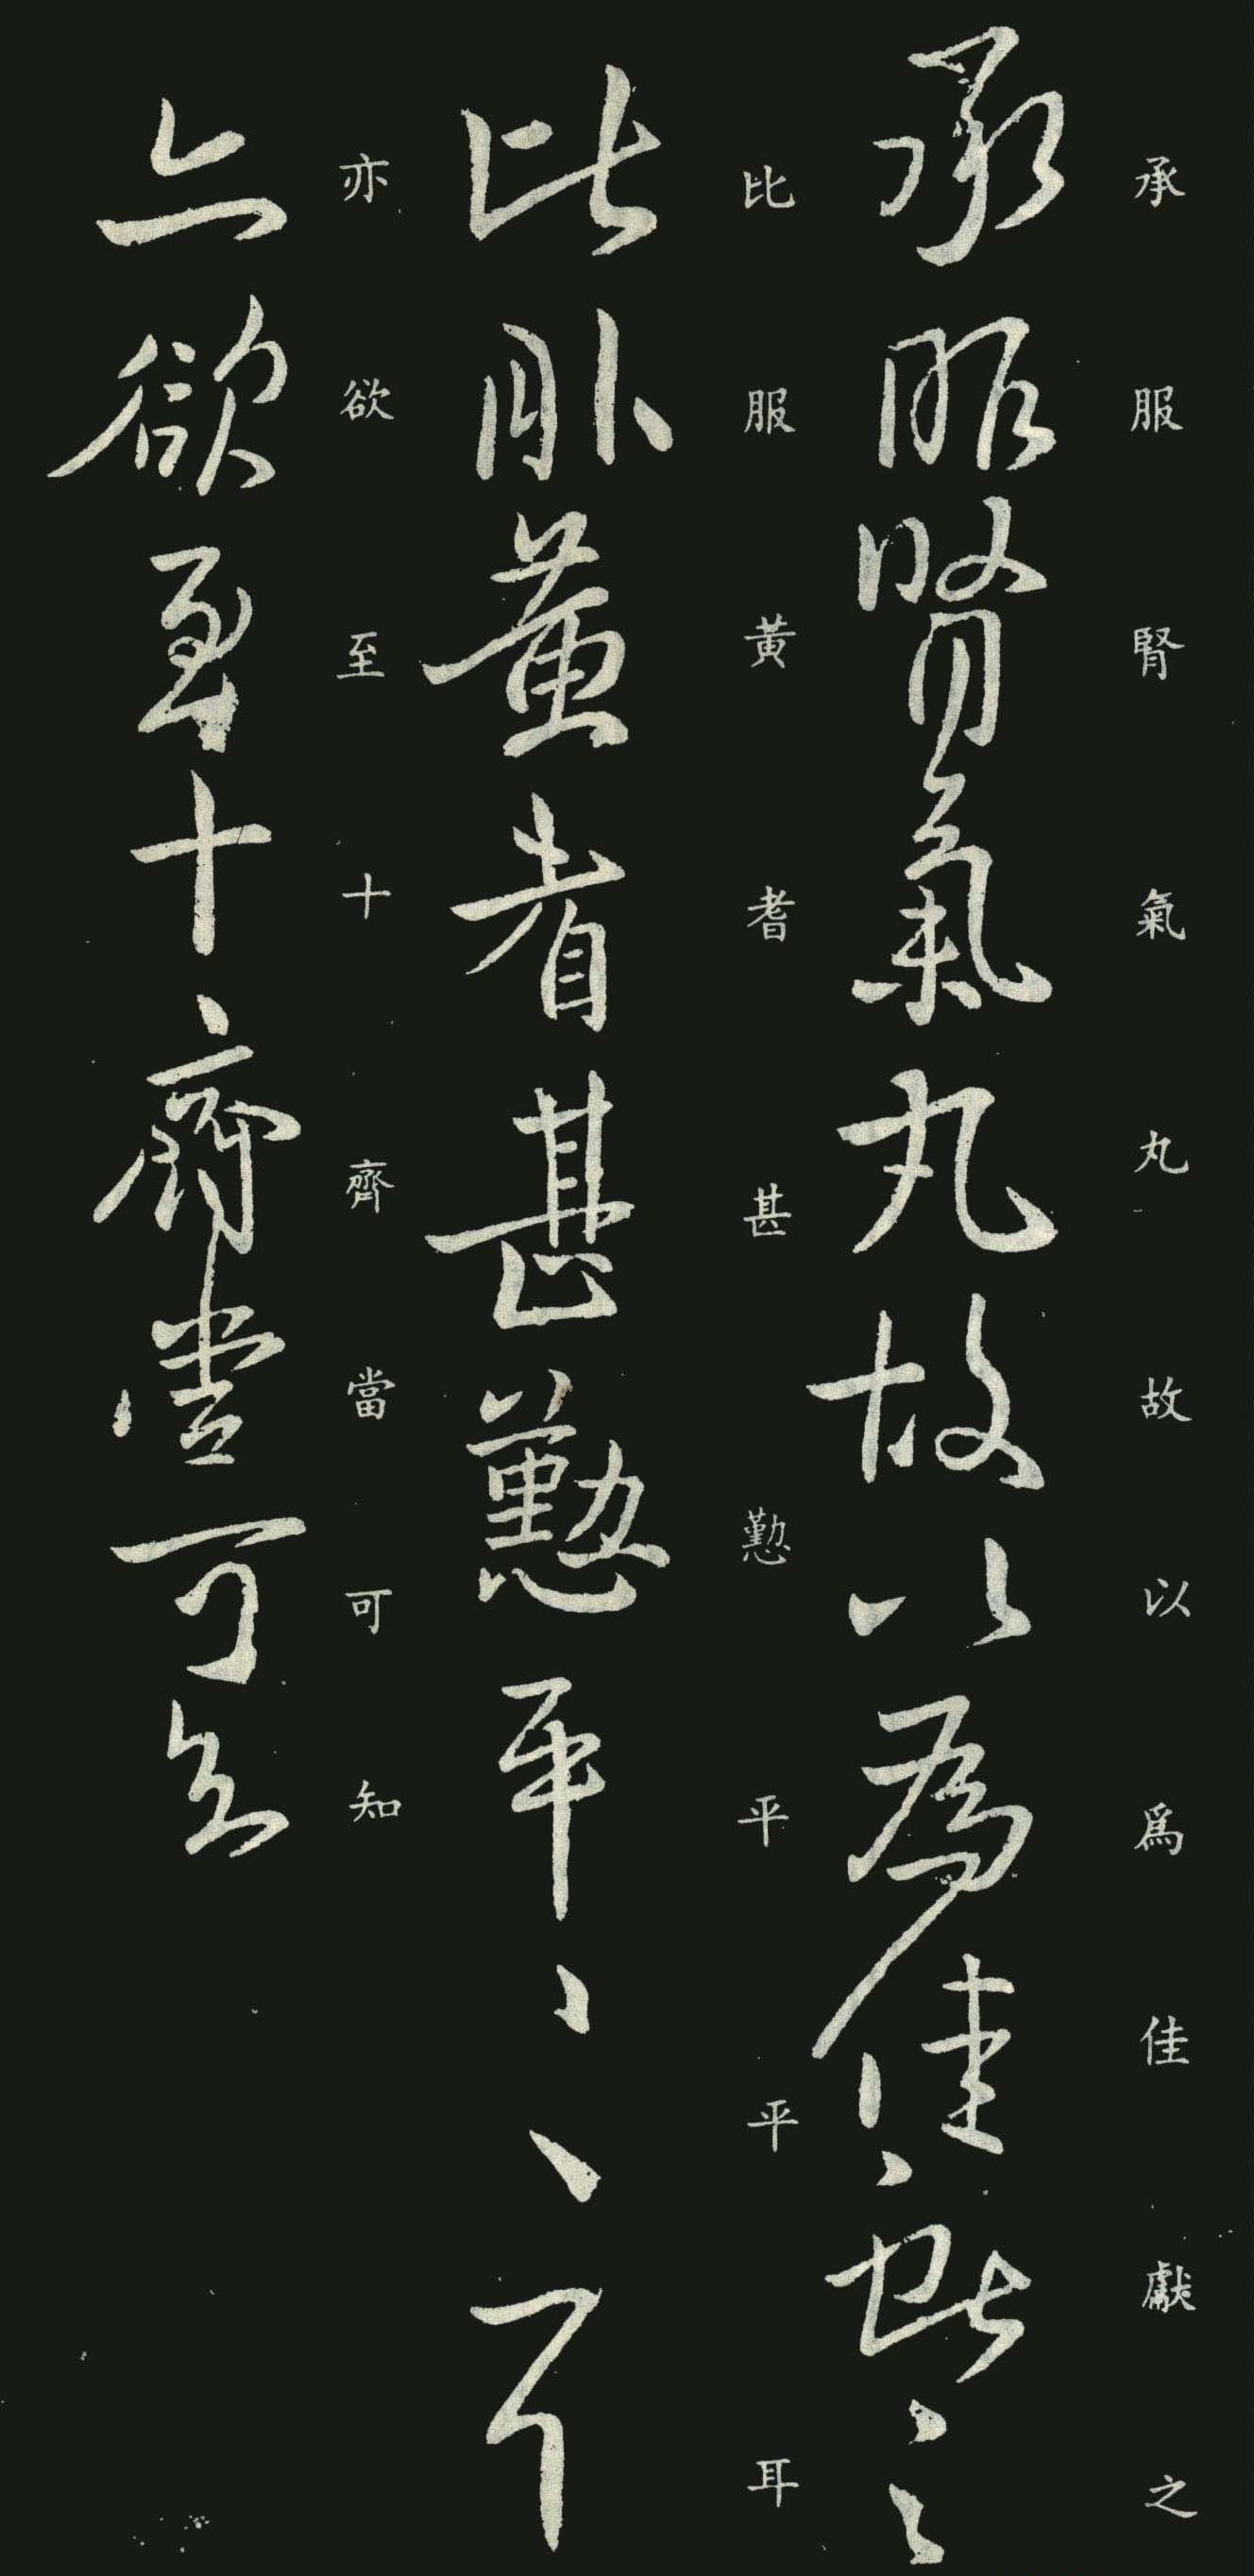 承服腎氣丸故以爲佳獻之
承服腎氣丸故以為佳獻之
比服黃耆甚懃平平耳
比服黃耆甚懃平〻耳
亦欲至十齊當可知
亦欲至十齊當可知